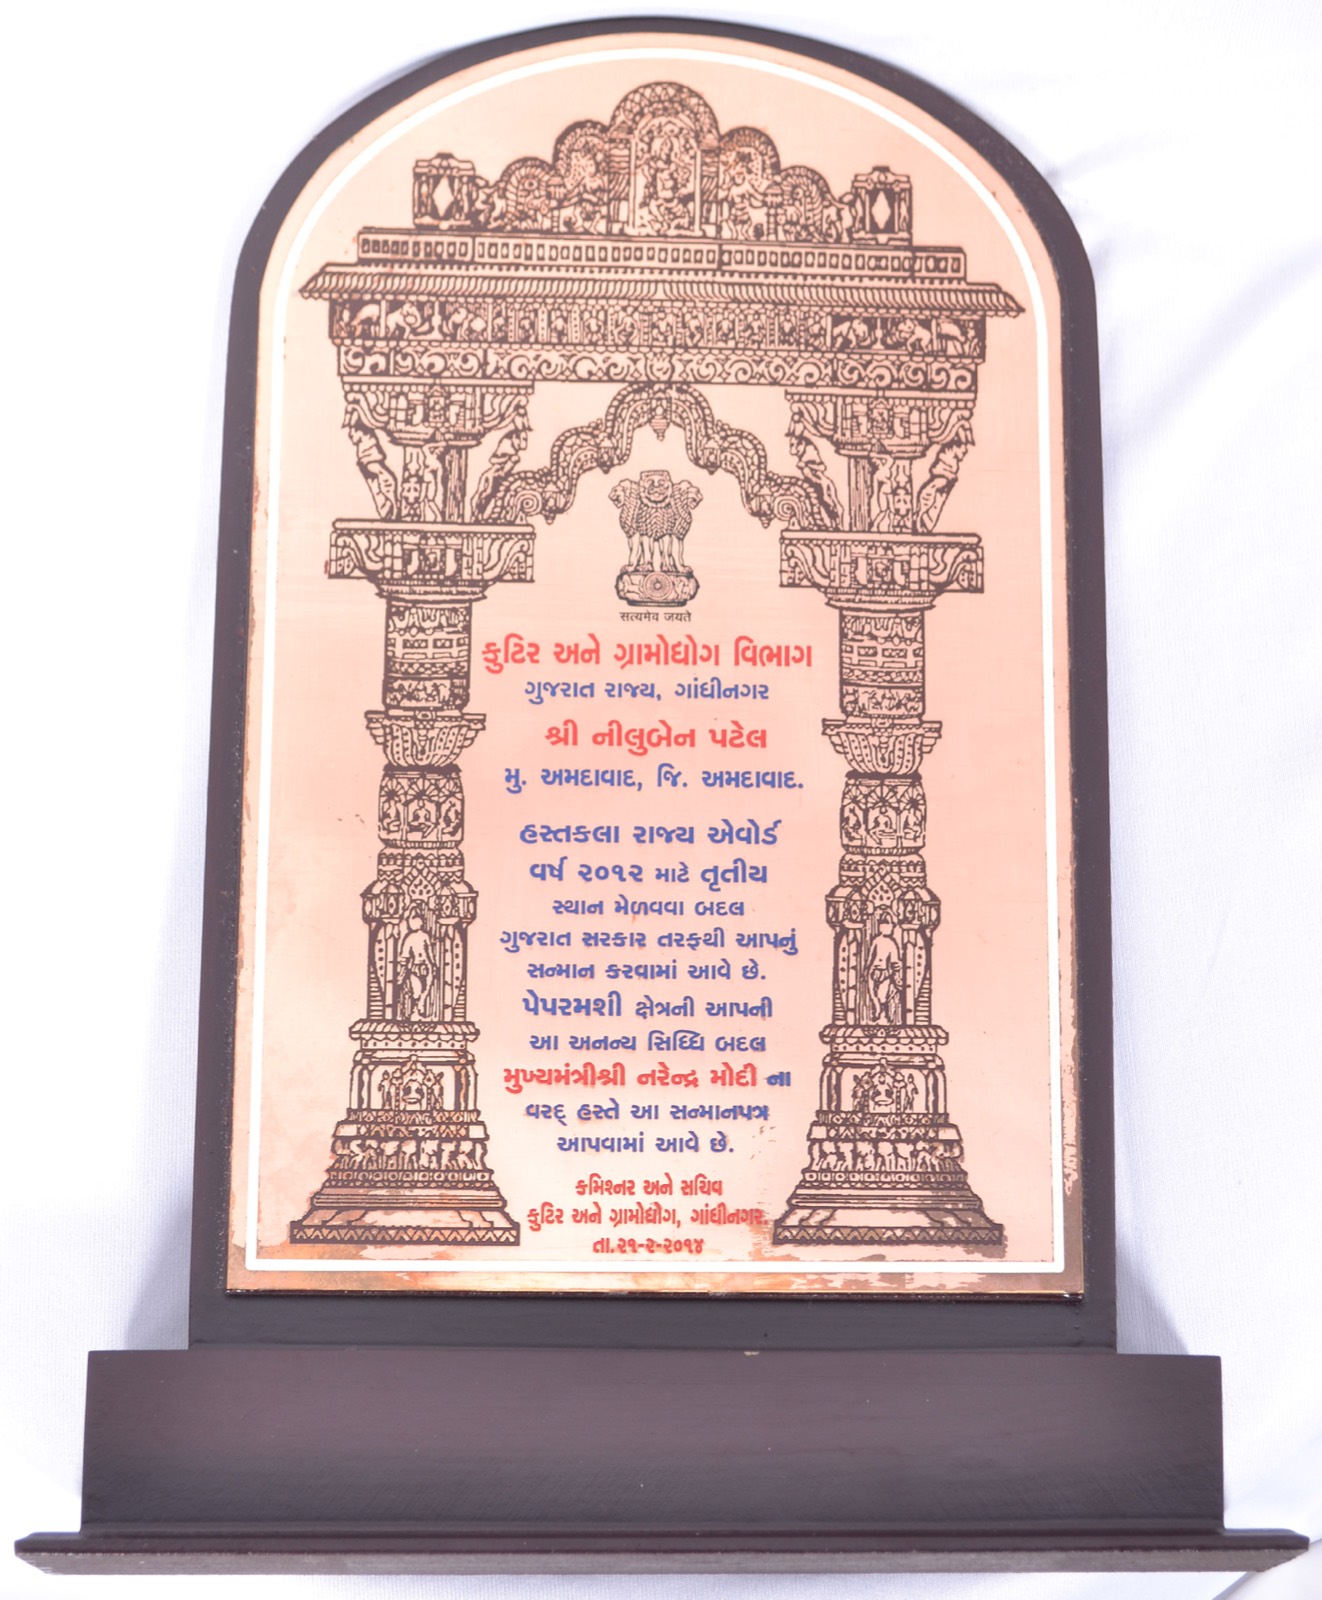 सत्यमेव जयते
કુટિર અને ગ્રામોધોગ વિભાગ
ગુજરાત રાજ્ય, ગાંધીનગર
શ્રી નીલુબેન પટેલ
મુ. અમદાવાદ, જિ. અમદાવાદ.
હસ્તકલા રાજ્ય એવોર્ડ
વર્ષ ૨૦૧૨ માટે તૃતીય
સ્થાન મેળવવા બદલ
ગુજરાત સરકાર તરફથી આપનું
સન્માન કરવામાં આવે છે.
પેપરમશી ક્ષેત્રની આપની
આ અનન્ય સિધ્ધિ બદલ
મુખ્યમંત્રીશ્રી નરેન્દ્ર મોદી ના
વરદ્ હસ્તે આ સન્માનપત્ર
આપવામાં આવે છે.
કમિશ્નર અને સચિવ
કુટિર અને ગ્રામોધોગ, ગાંધીનગર.
તા.૨૧-૨-૨૦૧૪